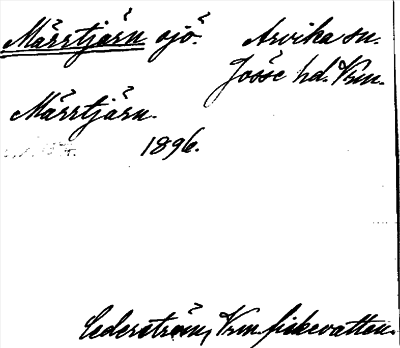 Märrtjärn sjö. Arvika sn.
Jösse hd. Vrm.
Märrtjärn.
1896.
Cederström, Vrm fiskevatten.